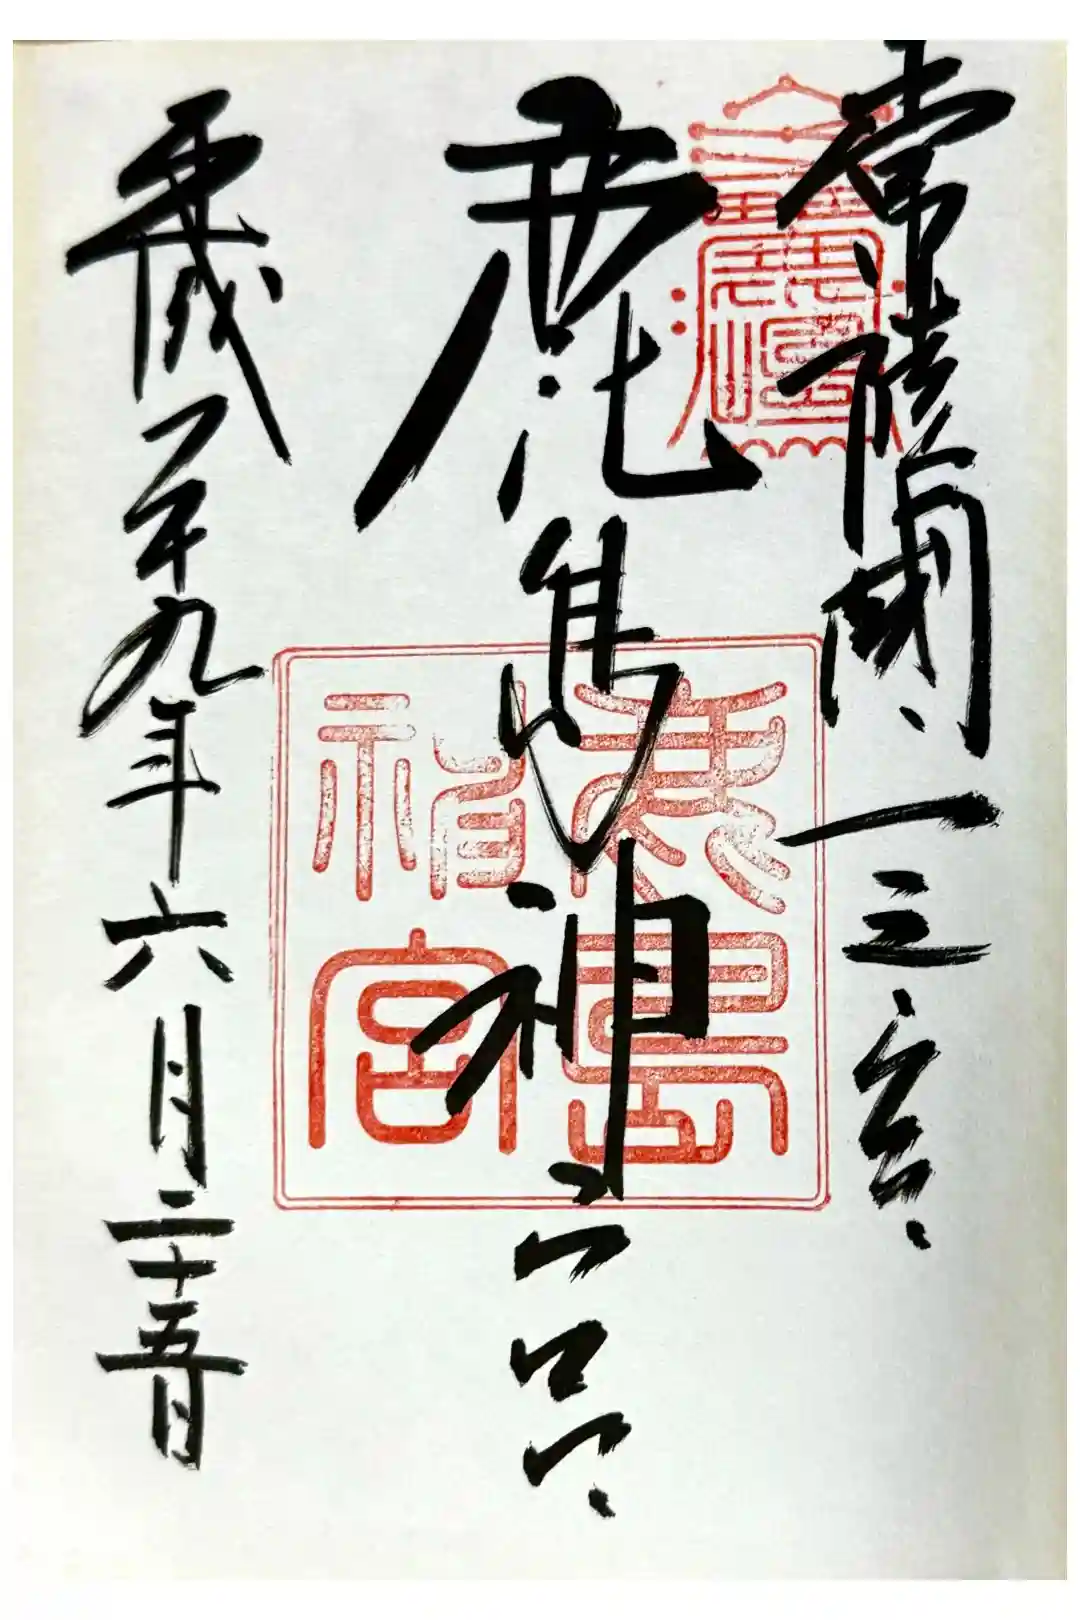 常陸國一之宮
鹿島神宮
平成二十九年六月二十五日
鹿島
神宮